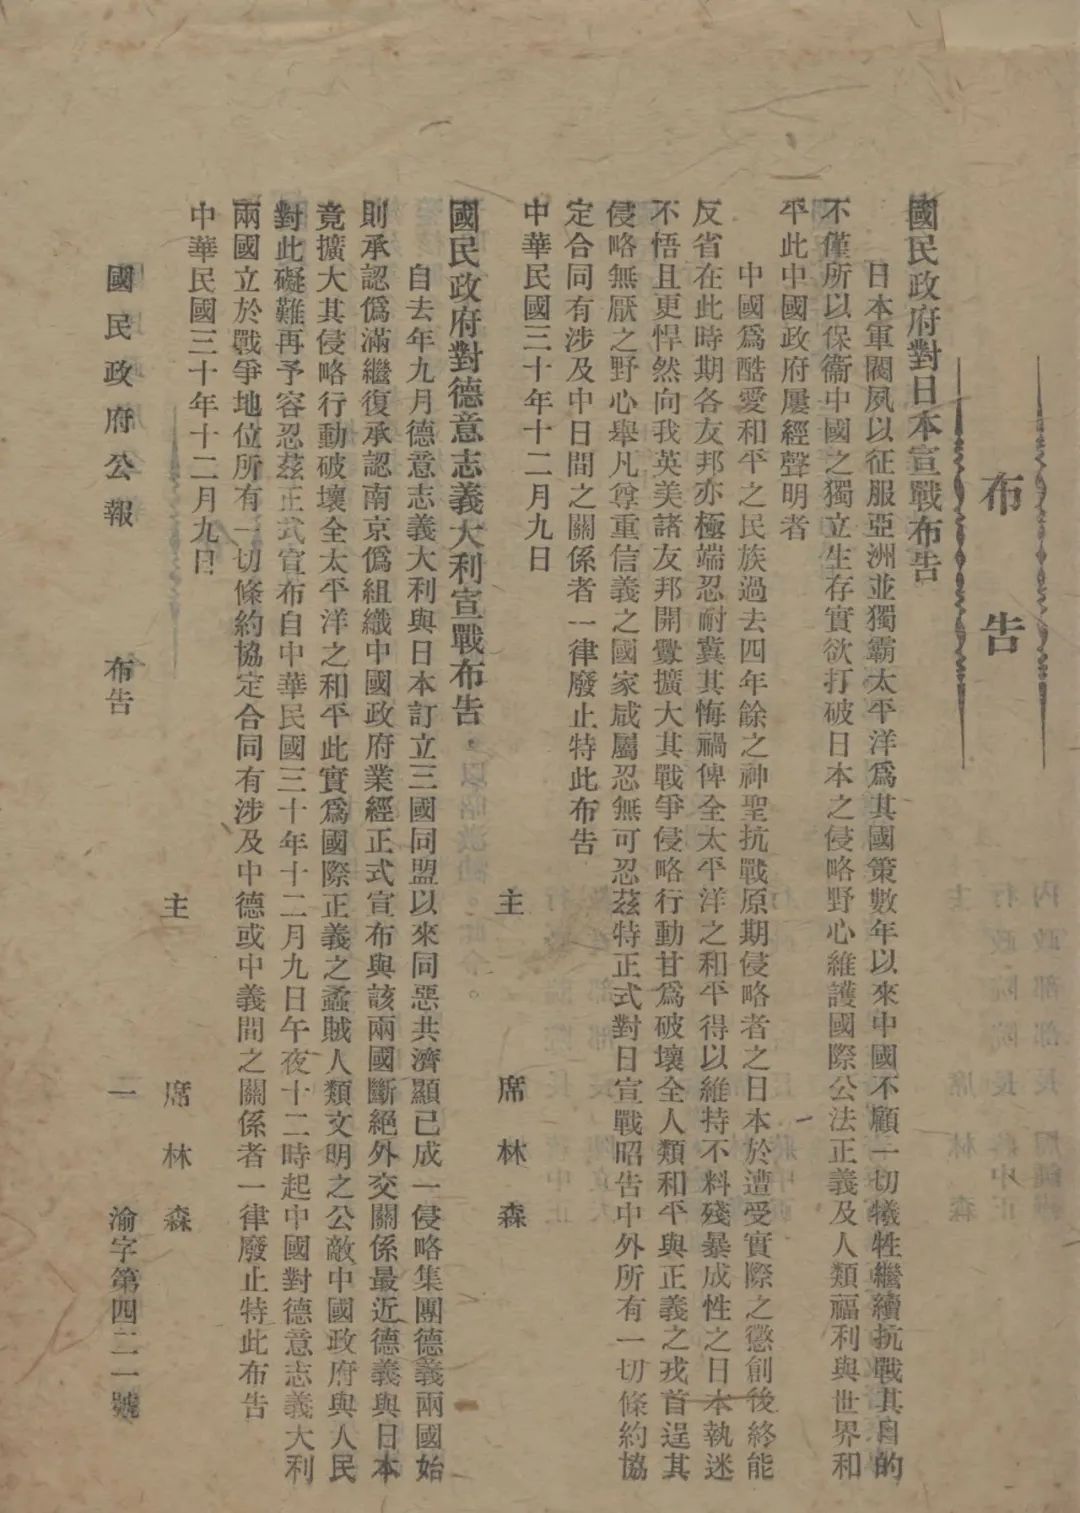 布告
國民政府對日本宣戰布告
日本軍閥夙以征服亞洲並獨霸太平洋爲其國策數年以來中國不顧一切犧牲繼續抗戰其目的
不僅所以保衞中國之獨立生存實欲打破日本之侵略野心維護國際公法正義及人類福利與世界和
平此中國政府屢經聲明者
中國爲酷愛和平之民族過去四年餘之神聖抗戰原期侵略者之日本於遭受實際之懲創後終能
反省在此時期各友邦亦極端忍耐冀其悔禍俾全太平洋之和平得以維持不料殘暴成性之日本執迷
不悟且更悍然向我英美諸友邦開釁擴大其戰爭侵略行動甘爲破壞全人類和平與正義之戎首逞其
侵略無厭之野心舉凡尊重信義之國家咸屬忍無可忍茲特正式對日宣戰昭告中外所有一切條約協
定合同有涉及中日間之關係者一律廢止特此布告
中華民國三十年十二月九日
主席林森
國民政府對德意志義大利宣戰布告
自去年九月德意志義大利與日本訂立三國同盟以來同惡共濟顯已成一侵略集團德義兩國始
則承認僞滿繼復承認南京僞組織中國政府業經正式宣布與該兩國斷絕外交關係最近德義與日本
竟擴大其侵略行動破壞全太平洋之和平此實爲國際正義之蟊賊人類文明之公敵中國政府與人民
對此礙難再予容忍茲正式宣布自中華民國三十年十二月九日午夜十二時起中國對德意志義大利
兩國立於戰爭地位所有一切條約協定合同有涉及中德或中義間之關係者一律廢止特此布告
中華民國三十年十二月九日
主席林森
國民政府公報 布告 一 渝字第四二一號